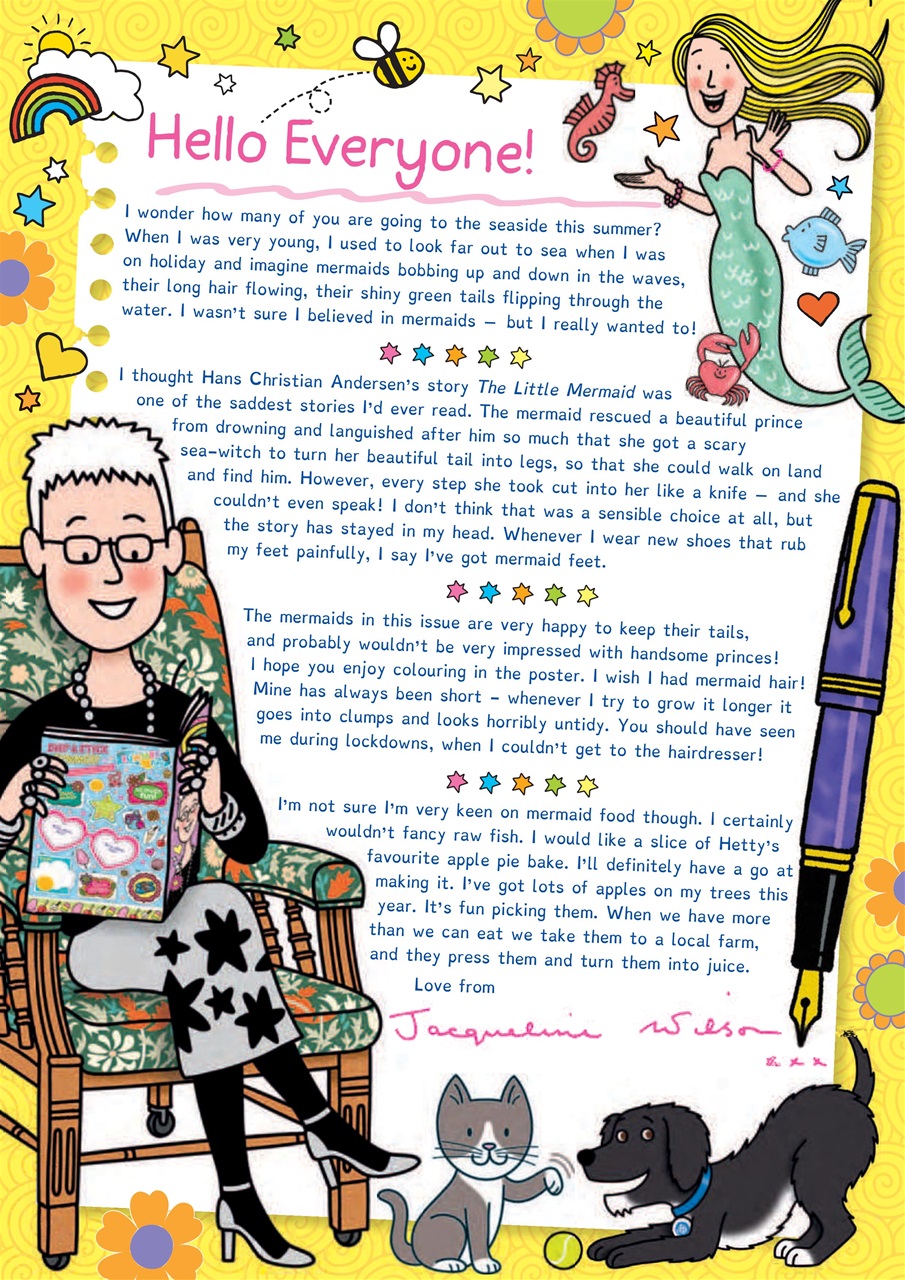 Hello Everyone!
I wonder how many of you are going to the seaside this summer?
When I was very young, I used to look far out to sea when I was
on holiday and imagine mermaids bobbing up and down in the waves,
their long hair flowing, their shiny green tails flipping through the
water. I wasn't sure I believed in mermaids – but I really wanted to!
I thought Hans Christian Andersen's story The Little Mermaid was
one of the saddest stories I'd ever read. The mermaid rescued a beautiful prince
from drowning and languished after him so much that she got a scary
sea-witch to turn her beautiful tail into legs, so that she could walk on land
and find him. However, every step she took cut into her like a knife – and she
couldn't even speak! I don't think that was a sensible choice at all, but
the story has stayed in my head. Whenever I wear new shoes that rub
my feet painfully, I say I've got mermaid feet.
The mermaids in this issue are very happy to keep their tails,
and probably wouldn't be very impressed with handsome princes!
I hope you enjoy colouring in the poster. I wish I had mermaid hair!
Mine has always been short – whenever I try to grow it longer it
goes into clumps and looks horribly untidy. You should have seen
me during lockdowns, when I couldn't get to the hairdresser!
I'm not sure I'm very keen on mermaid food though. I certainly
wouldn't fancy raw fish. I would like a slice of Hetty's
favourite apple pie bake. I'll definitely have a go at
making it. I've got lots of apples on my trees this
year. It's fun picking them. When we have more
than we can eat we take them to a local farm,
and they press them and turn them into juice.
Love from
Jacqueline Wilson
x x x